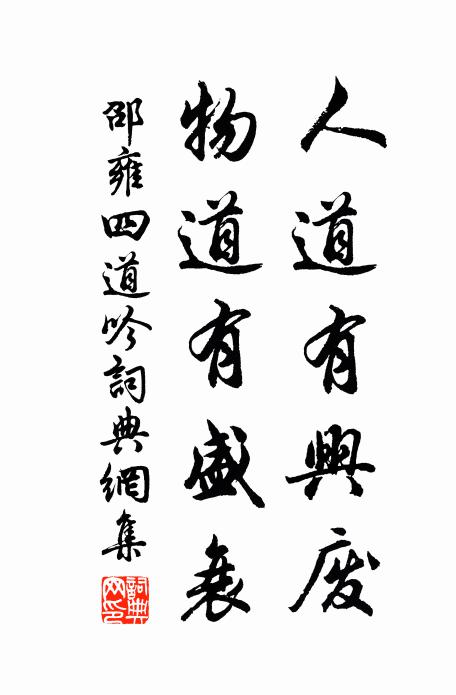 人道有興廢
物道有盛衰
邵雍四道吟詞典網集
詞典网印